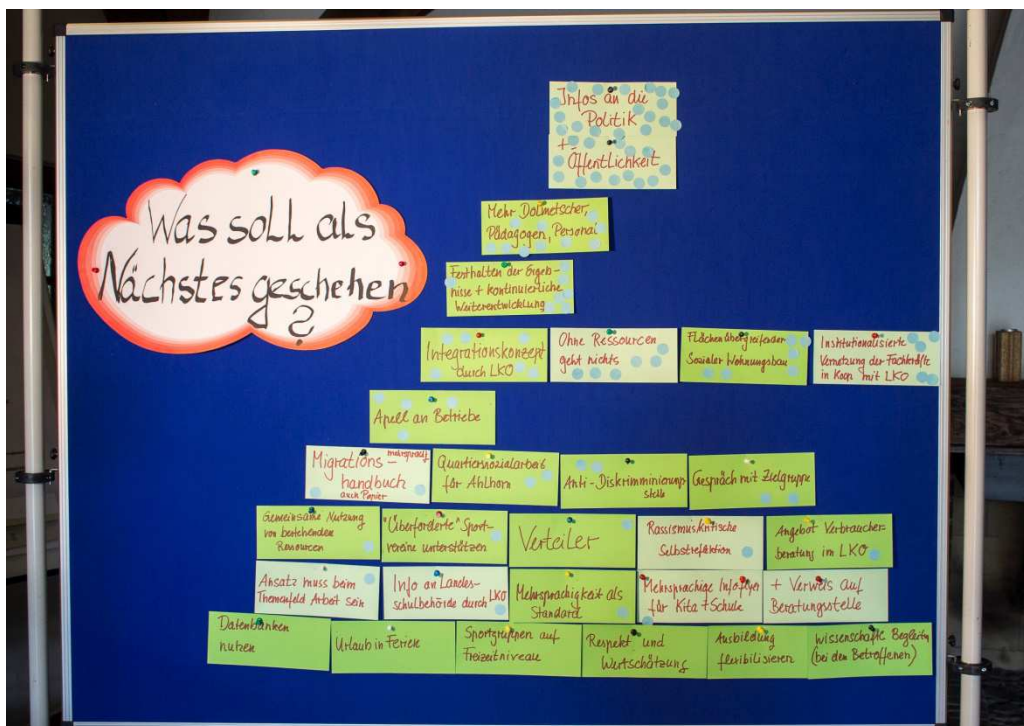 Was soll als
Nächstes geschehen
?
Infos an die
Politik
+
Öffentlichkeit
Mehr Dolmetscher,
Pädagogen, Personal
Festhalten der Ergeb-
nisse + kontinuierliche
Weiterentwicklung
Integrationskonzept
durch LKO
Ohne Ressourcen
geht nichts
Flächenübergreifender
Sozialer Wohnungsbau
Institutionalisierte
Vernetzung der Fachkräfte
in Koop mit LKO
Apell an Betriebe
mehrsprachig
Migrations-
handbuch
auch Papier
Quartierssozialarbeit
für Ahlhorn
Anti-Diskrimminierungs
stelle
Gespräch mit Zielgruppe
Gemeinsame Nutzung
von bestehenden
Ressourcen
"Überforderte" Sport-
vereine unterstützen
Verteiler
Rassismuskritische
Selbstreflektion
Angebot Verbraucher-
beratung im LKO
Ansatz muss beim
Themenfeld Arbeit sein
Info an Landes-
schulbehörde durch LKO
Mehrsprachigkeit als
Standard
Mehrsprachige Infoflyer
für Kita + Schule
+ Verweis auf
Beratungsstelle
Datenbanken
nutzen
Urlaub in Ferien
Sportgruppen auf
Freizeitniveau
Respekt und
Wertschätzung
Ausbildung
flexibilisieren
(bei den Betroffenen)